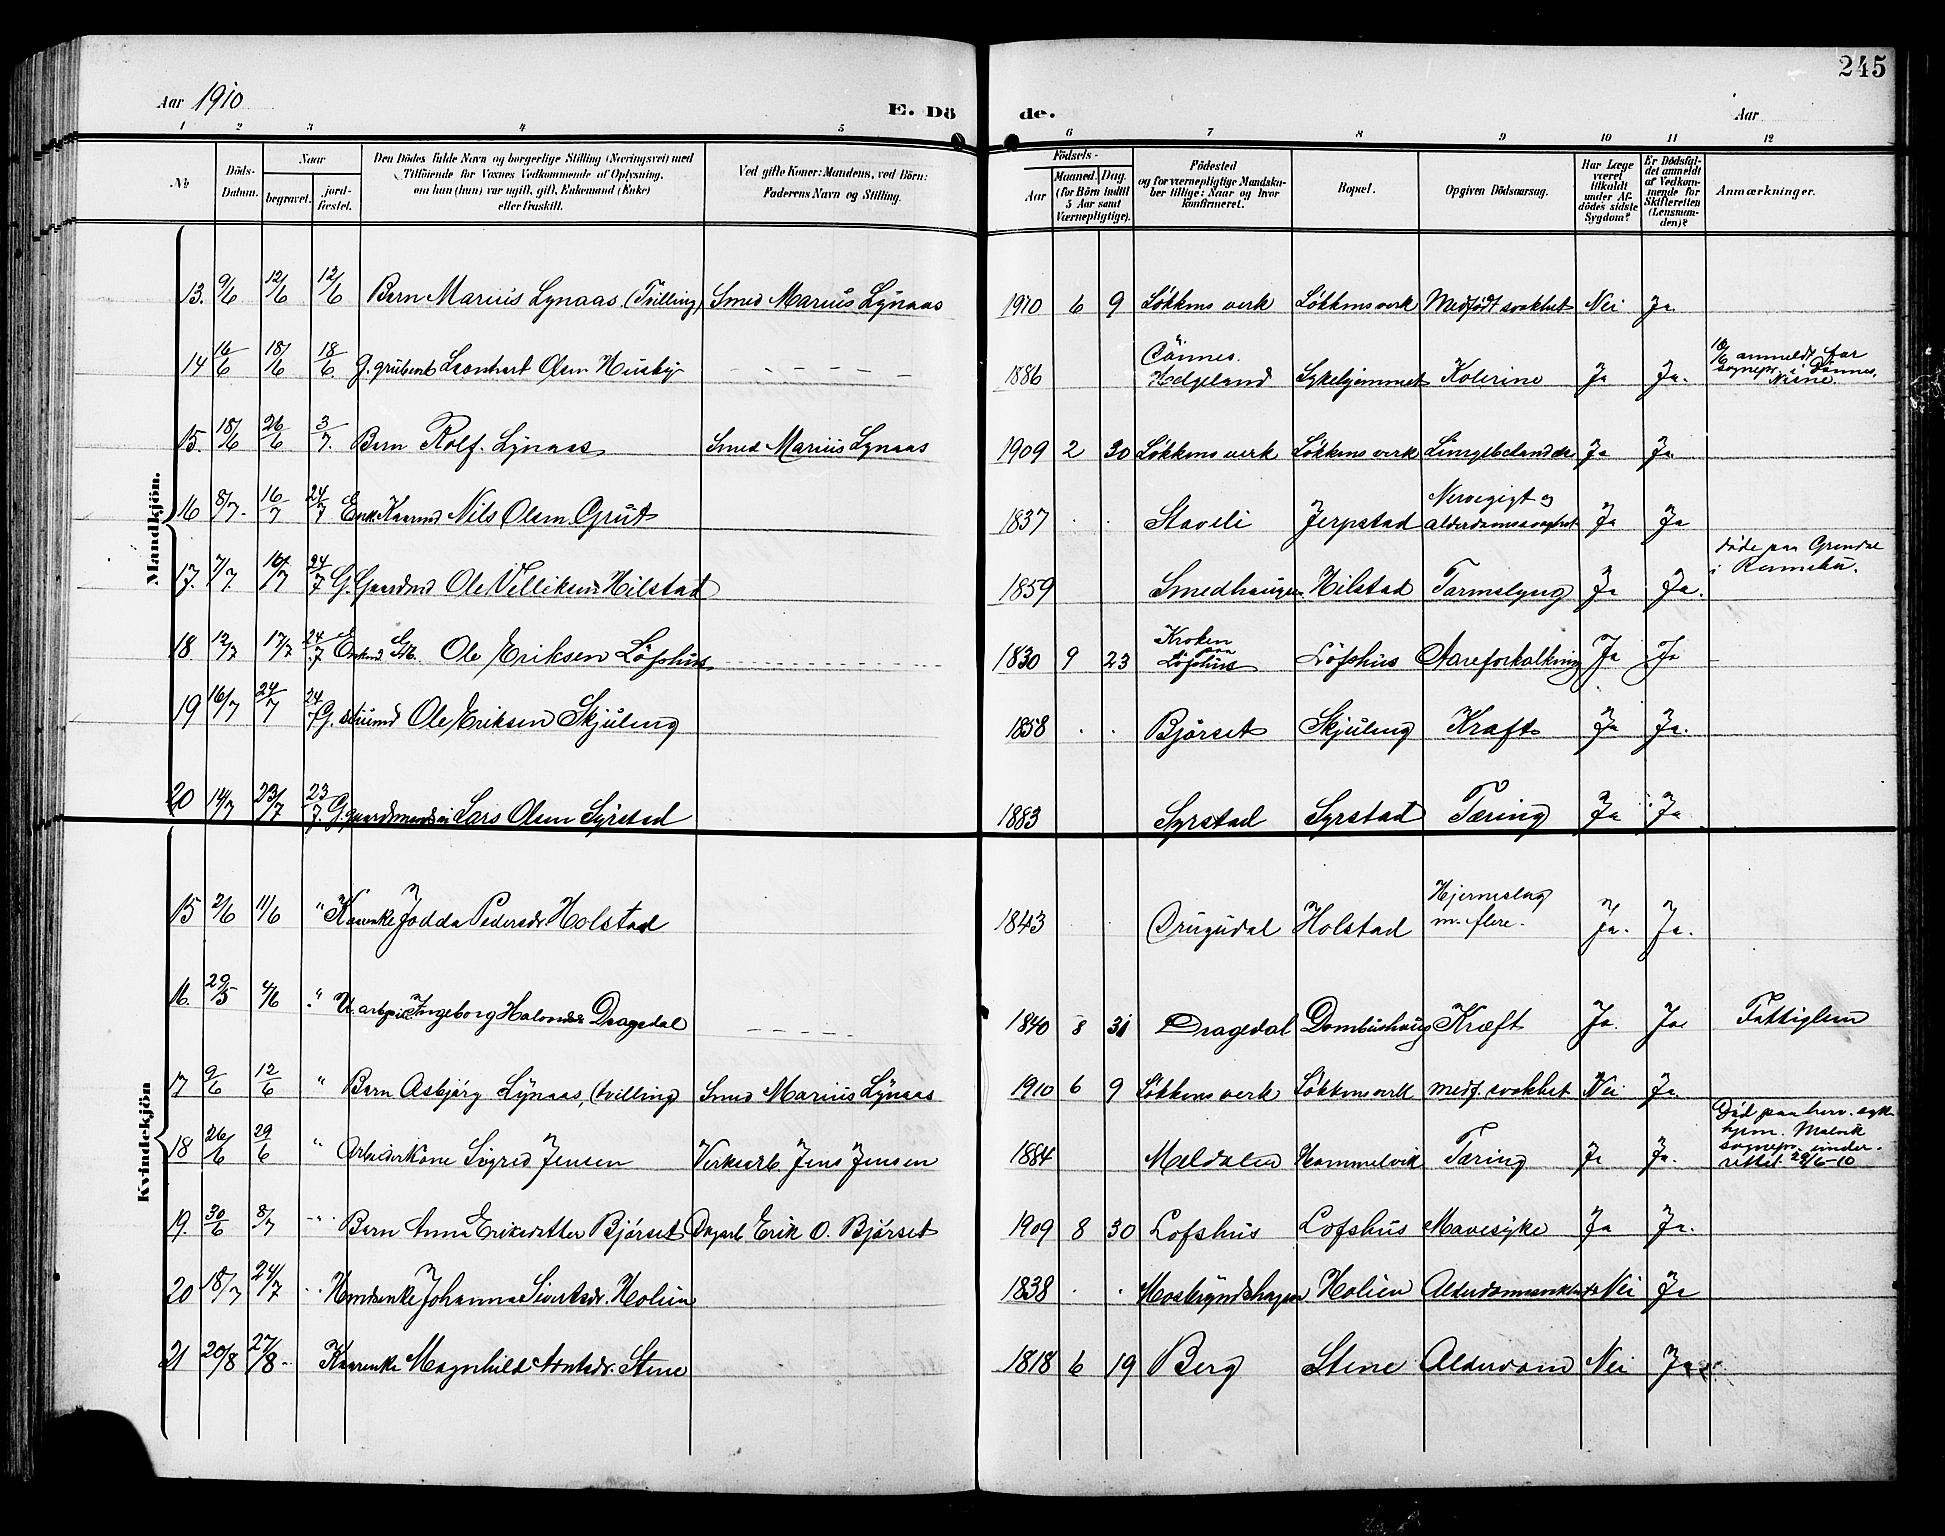 245
Aar 1910
E. Dö de.
Aar
1 2 3 4 5 6 7 8 9 10 11 12
No.
Döds-Datum.
Naar
begravet.
jord-fæstet.
Den Dödes fulde Navn og borgerlige Stilling (Næringsvei) med
Tilföiende for Voxnes Vedkommende af Oplysning,
om han (hun) var ugift, gift, Enkemand (Enke)
eller fraskilt.
Ved gifte Koner: Mandens, ved Börn:
Faderens Navn og Stilling.
Födsels-
Aar
Maaned. Dag.
(for Börn indtil
5 Aar samt
Værnepligtige).
Födested
og for værnepligtige Mandska-
ber tillige: Naar og hvor
konfirmeret.
Bopæl.
Opgiven Dödsaarsag.
Har Læge
været
tilkaldt
under Af-
dödes sidste
Sygdom?
Er Dödsfal-
det anmeldt
af Vedkom-
mende for
Skifteretten
(Lensman-
den)?
Anmærkninger.
Mandkjön.
13. 9/6 12/6 12/6 Barn Marius Lynaas (Tvilling) Smed Marius Lynaas 1910 6 9 Løkkens verk Løkkens verk Medfødt svakhet Nei Ja
14 16/6 18/6 18/6 G. grubearb Leonhart Olsen Husby 1886 Dønnes. Helgeland Sykehjemmet Kolerine Ja Ja. 18/6 anmeldt for sognepr. i Dønnes, Nesne.
15. 18/6 26/6 3/7. Barn Rolf Lynaas Smed Marius Lynaas 1909 2 20 Løkkens verk Løkkens verk Lungebetændelse Ja Ja
16 8/7. 16/7 24/7 Enk. Kaarmd Nils Olsen Grut 1837 . . Staveli Jerpstad Nervegigt og alderdomssvaghet Ja Ja
17. 7/7. 16/7 24/7 G. Gaardmd Ole Villiksen Hilstad 1859 Smedhaugen Hilstad Tarmslyng Ja Ja. døde paa Grendal i Rennebu.
18. 12/7 17/7 24/7 Enkmd Ole Eriksen Löfshus 1830 9 23 Kroken paa Löfshus Löfshus Aareforkalkning Ja Ja
19 16/7 24/7 24/7 G. Ole Eriksen Skjuleng 1858 . . Bjørset Skjuleng Kræft Ja Ja.
20 14/7 23/7 23/7 G. gaardmands Lars Olsen Syrstad 1883 Syrstad Syrstad Tæring Ja Ja
Kvindekjön
15 2/6 11/6 " Kaarenke Jodda Pedersdr Holstad 1843 Drugudal Holstad Hjerneslag m. flere. Ja. Ja.
16. 29/5 4/6 " U. arb.pi. Ingeborg Dragedal 1840 8 31 Dragedal Dombushaug Kræft Ja. Ja Fattiglem
17 9/6 12/6 " Barn Asbjørg Lynaas, (tvilling) Smed Marius Lynaas 1910 6 9 Løkkens verk Løkkens verk medf. svakhet Nei Ja
18 26/6 29/6 " Arbeiderkone Sigrid Jensen Verksarb. Jens Jensen 1884 Meldalen Hommelvik Tæring Ja Ja. Død paa herv. syk hjem. Malvik sognepr. underrettet. 28/6-10
19. 30/6 8/7 " Barn Anna Eriksdatter Bjørset Dagarb. Erik O. Bjørset 1909 8 30 Lofshus Lofshus Mavesyke Ja Ja.
20 18/7 24/7 " Hmdsenke Johanna Sivertsdr. Holien 1838 . . Holien Nei Ja
21 20/8 27/8 Kaarenke Magnhild Arntsdr. Stene 1818 6 19 Berg Stene Alderdom Nei Ja